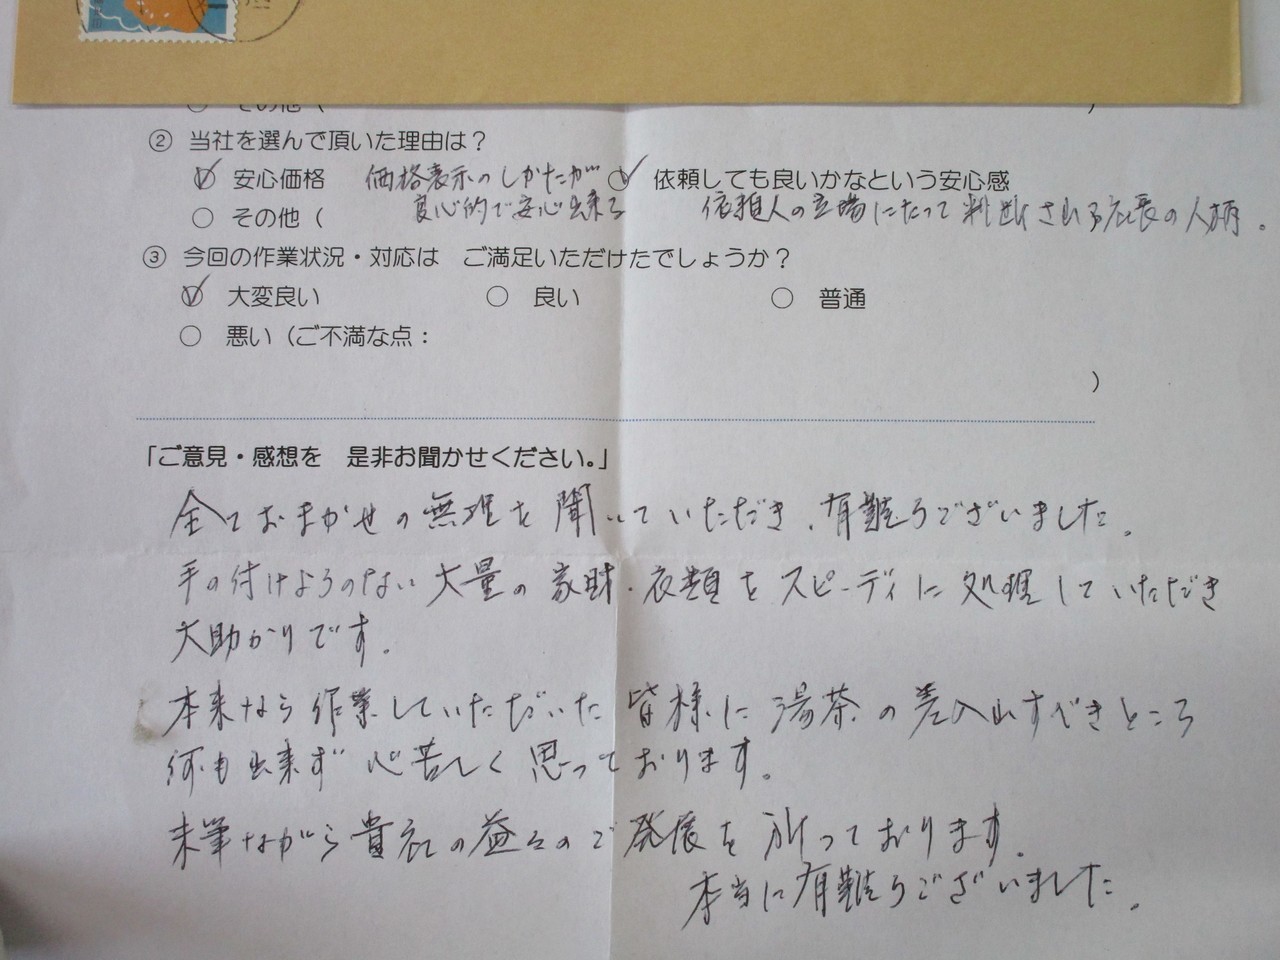 ○ その他 ( )
② 当社を選んで頂いた理由は？
安心価格 価格表示のしかたが 依頼しても良いかなという安心感
○ その他 ( 良心的で安心出来る 依頼人の立場にたって判断される社長の人柄。
③ 今回の作業状況・対応は ご満足いただけたでしょうか？
大変良い ○ 良い ○ 普通
○ 悪い（ご不満な点：
)
「ご意見・感想を 是非お聞かせください。」
全ておまかせの無理を聞いていただき、有難うございました。
手の付けようのない大量の家財・衣類をスピーディに処理していただき
大助かりです。
本来なら作業していただいた皆様に湯茶の差入出すべきところ
何も出来ず心苦しく思っております。
末筆ながら貴社の益々のご発展を祈っております。
本当に有難うございました。